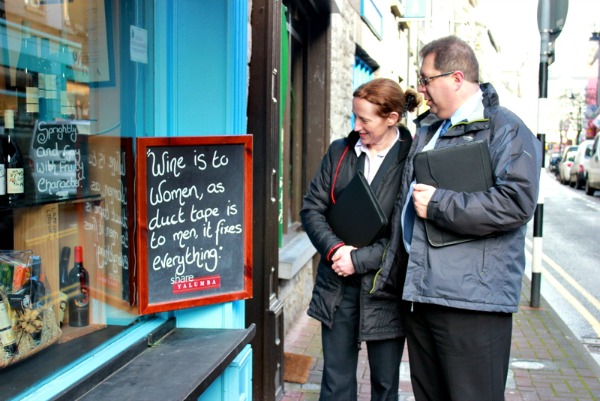 "Wine is to
Women, as
duct tape is
to men, it fixes
everything."
share
YALUMBA
Sprightly
and fruity
With Firm
Character